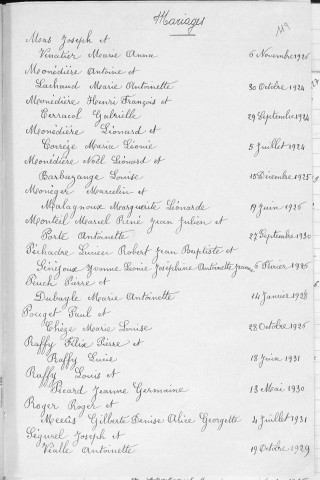 Mariages
119
Mons Joseph et
Vinatier Marie Anna 6 Novembre 1926
Monédière Antoine et
Lachaud Marie Antoinette 30 Octobre 1924
Monédière Henri François et
Terracol Gabrielle 29 Septembre 1924
Monédière Léonard et
Corrèze Maria Léonie 5 Juillet 1924
Monédière Noël Léonard et
Barbazange Louise 15 Décembre 1925
Monéger Marcelin et
Malagnoux Marguerite Léonarde 19 Juin 1926
Monteil Marcel René Jean Julien et
Porte Antoinette 27 Septembre 1930
Péchadre Lucien Robert Jean Baptiste et
Généjoux Yvonne Léonie Joséphine Antoinette Jeanne 6 Février 1926
Peuch Pierre et
Dubayle Marie Antoinette 14 Janvier 1928
Pouget Paul et
Chèze Marie Louise 28 Octobre 1926
Raffy Félix Pierre et
Raffy Lucie 18 Juin 1931
Raffy Louis et
Picard Jeanne Germaine 13 Mai 1930
Roger Roger et
Gilberte Denise Alice Georgette 4 Juillet 1931
Ségurel Joseph et
Vialle Antoinette 19 Octobre 1929